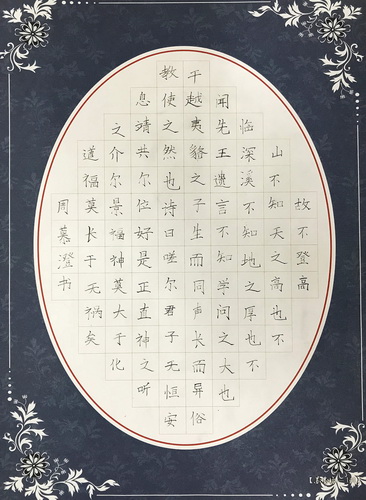 故不登高
山不知天之高也不
临深溪不知地之厚也不
闻先王遗言不知学问之大也
干越夷貉之子生而同声长而异俗
教使之然也诗曰嗟尔君子无恒安
息靖共尔位好是正直神之听
之介尔景福神莫大于化
道福莫长于无祸矣
周慕澄书